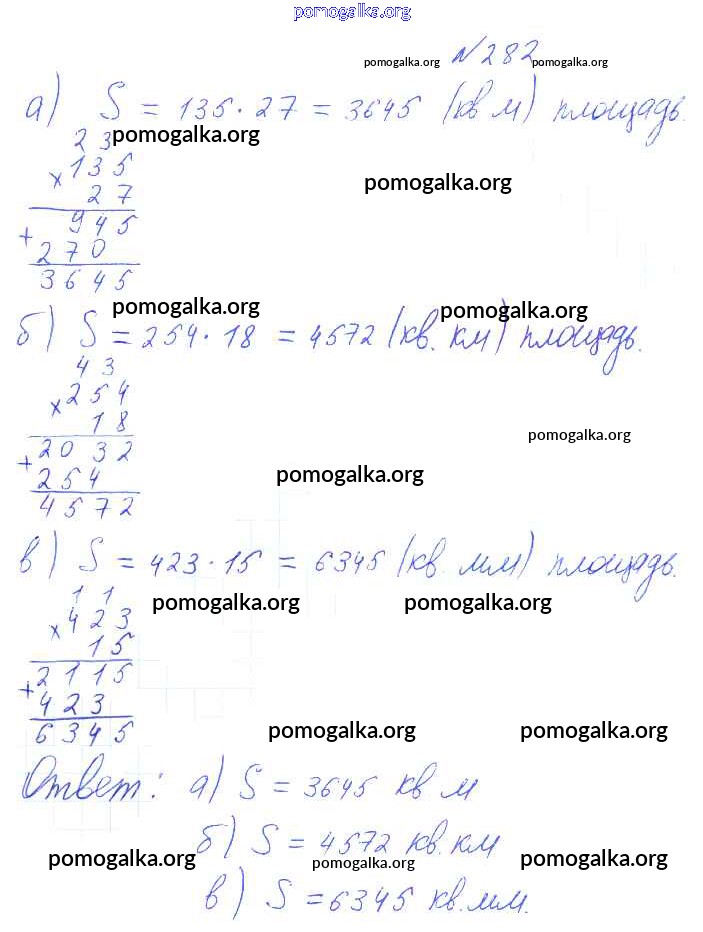 pomogalka.org
pomogalka.org №282 pomogalka.org
а) S = 135 · 27 = 3645 (кв м) площадь.
2 3 pomogalka.org
× 135
27 pomogalka.org
945
+ 270
3645
pomogalka.org pomogalka.org
б) S = 254 · 18 = 4572 (кв. км) площадь.
4 3
× 254
18 pomogalka.org
2032
+ 254 pomogalka.org
4572
в) S = 423 · 15 = 6345 (кв. мм) площадь.
1 1 pomogalka.org pomogalka.org
× 423
15
2115
+ 423
6345 pomogalka.org pomogalka.org
Ответ: а) S = 3645 кв м
б) S = 4572 кв. км
pomogalka.org pomogalka.org pomogalka.org
в) S = 6345 кв. мм.